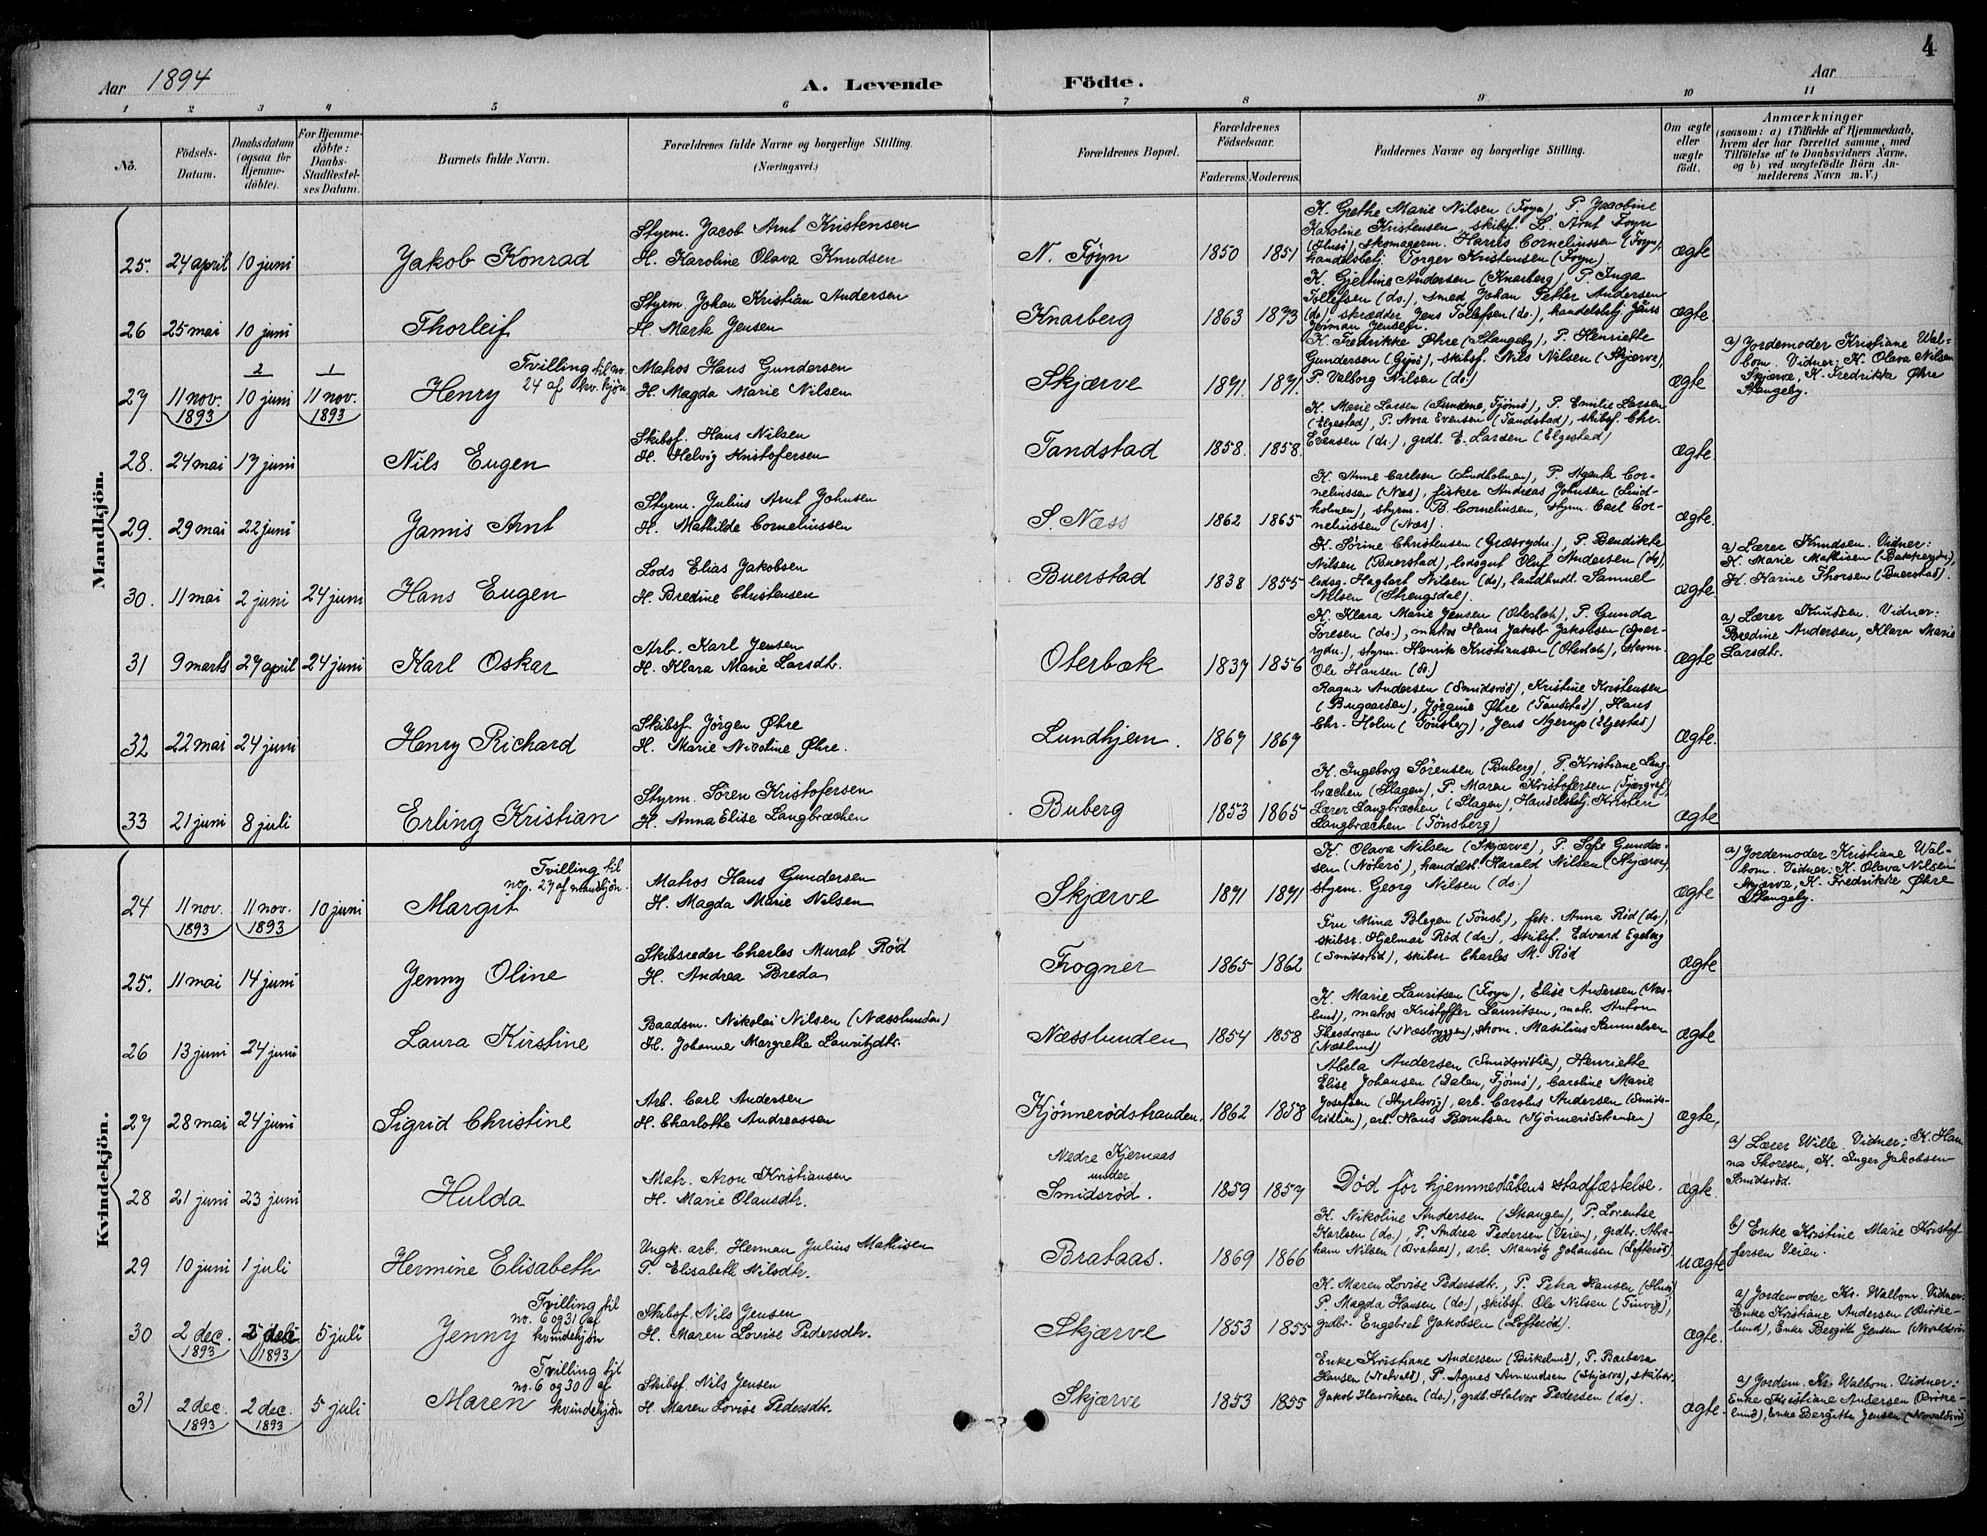 4
Aar 1894
A. Levende Födte.
Aar
1 2 3 4 5 6 7 8 9 10 11
No.
Födsels-Datum.
Daabsdatum (ogsaa for Hjemmedöbte).
For Hjemmedöbte: Daabs-Stadfæstelses Datum.
Barnets fulde Navn.
Forældrenes fulde Navne og borgerlige Stilling.
(Næringsvei.)
Forældrenes Bopæl.
Forældrenes Födselsaar.
Faderens. Moderens.
Faddernes Navne og borgerlige Stilling.
Om ægte eller uægte födt.
Anmærkninger
(saasom: a) i Tilfælde af Hjemmedaab,
hvem der har forrettet samme, med
Tilföielse af to Daabsvidners Navne.
og b) ved uægtefödte Börn Anmelderens Navn m. V.)
Mandkjön.
25. 24 april 10 juni Jakob Konrad
Styrm. Jacob Arnt Kristensen
H. Karoline Olava Knudsen
N. Föyn 1850 1851
K. Grethe Marie Nilsen (Foyn), P. Jacobine
Karoline Kristensen, skibsf. L. Arnt Foyn
(Husö), skomagerm. Harris Corneliussen (Foyn),
handelsbetj. Torger Kristensen (Foyn)
ægte
26 25 mai 10 juni Thorleif
Styrm Johan Kristian Andersen
H. Marta Jensen
Knarberg 1863 1873
K. Gjeltine Andersen (Knarberg), P. Inga
Tollefsen (do.), smed Johan Petter Andersen
(do), skrædder Jens Tollefsen (do.), handelsbetj. Jens
Herman Jensen.
ægte
27 11 nov. 1893 2 10 juni 1 11 nov. 1893 Henry
Tvilling til no.
24 af kv. kjön
Matros Hans Gundersen
H. Magda Marie Nilsen
Skjærve 1871. 1871.
K. Fredrikke Øhre (Stangeby), P. Henriette
Gundersen (Gipö), skibsf. Nils Nilsen (Skjærve),
P. Valborg Nilsen (do.)
ægte
a) Jordemoder Kristiane Walbom. Vidner: K. Olava Nilsen
Skjærve, K. Fredrikke Øhre
Stangeby.
28. 24 mai 17 juni Nils Eugen
Skibsf. Hans Nilsen
H. Helvig Kristofersen
Tandstad 1858. 1858.
K. Marie Larsen (Sundene, Tjömö), P. Emilie Larsen
(Elgestad), P. Nora Evensen (Tandstad), skibsf. Chr.
Evensen (do.), grdb. E. Larsen (Elgestad)
ægte.
29. 29 mai 22 juni Jamis Arnt
Styrm. Julius Arnt Johnsen
H. Mathilde Corneliussen
S. Næss 1862 1865
K. Anne Carlsen (Lindholmen), P. Agenta Corneliussen (Næs), fisker Andreas Johnsen (Lindholmen), styrm. B. Corneliusen, styrm. Carl Corneliussen (Næs).
ægte.
30. 11 mai 2 juni 24 juni Hans Eugen
Lods Elias Jakobsen
H. Bredine Christensen
Buerstad 1838 1855
K. Sörine Christensen (Græsrydn.), P. Bendikte
Nilsen (Buerstad), lodsgut Oluf Andersen (do),
lodsg. Hagbart Nilsen (do), landhndl. Samuel
Nilsen (Strengsdal).
ægte
a) Lærer Knudsen. Vidner:
K. Marie Mathisen (Bakkerydn),
K. Karine Thorsen (Buerstad).
31 9 marts 27 april 24 juni Karl Oskar
Arb. Karl Jensen
H. Klara Marie Larsdtr.
Oterbæk 1837 1856
K. Klara Marie Jensen (Oterbæk), P. Gunda
Toresen (do.), matros Hans Jakob Jakobsen
styrm. Henrik Kristiansen (Oterbæk), styrm.
Ole Hansen (do)
ægte
a) Lærer Knudsen. Vidner:
Bredine Andersen, Klara Marie
Larsdtr.
32 22 mai 24 juni Henry Richard
Skibsf. Jörgen Øhre
H. Marie Nicoline Øhre.
Lundhjem. 1867 1867
Ragna Andersen (Smidsröd), Kristine Kristensen
(Bugaarden), Jörgine Øhre (Tandstad), Hans
Chr. Holm (Tönsberg), Jens Agerup (Elgestad)
ægte.
33 21 juni 8 juli Erling Kristian
Styrm. Sören Kristofersen
H. Anna Elise Langbrækken
Buberg 1853 1865
K. Ingeborg Sörensen (Buberg), P. Kristiane Langbrækken (Slagen), P. Maren Kristofersen
Lærer Langbrækken (Slagen), Handelsbetj. Kristen
Langbrækken (Tönsberg)
ægte
Kvindekjön.
24 11 nov. 1893 11 nov. 1893 10 juni Margit
Tvilling til
no. 27 af mandkjön.
Matros Hans Gundersen
H. Magda Marie Nilsen
Skjærve 1871 1871
K. Olava Nilsen (Skjærve), P. Sofie Gundersen (Nöterö), handelsb. Harald Nilsen (Skjærve),
styrm. Georg Nilsen (do.)
ægte
a) Jordemoder Kristiane Walbom. Vidner: K. Olava Nilsen
Skjærve, K. Fredrikke Øhre
Stangeby.
25. 11 mai 14 juni Jenny Oline
Skibsreder Charles Murat Röd
H. Andrea Breda
Trogner 1865 1862
Fru Mina Blegen (Tönsb.), frk. Anna Röd (do),
skibsr. Hjalmar Röd (do.), skibsf. Edvard Egeberg
(Smidsröd), skibsr Charles M. Röd
ægte
26 13 juni 24 juni Laura Kirstine
Baadsm. Nikolai Nilsen (Næsslunden)
H. Johanne Margrethe Lauritzdtr.
Næsslunden 1854 1858
K. Marie Lauritsen (Foyn), Elise Andersen (Næslund), matros Kristoffer Lauritsen, matr. Anton
Theodorsen (Næsbryggen), skom. Masilius Samuelsen
(Næslund)
ægte
27 28 mai 24 juni Sigrid Christine
Arb. Carl Andersen
H. Charlotte Andreassen
Kjönnerödstranden. 1862 1858
Abela Andersen (Smidsrödlien), Henriette
Elise Johansen (Dalen, Tjömö), Caroline Marie
Josefsen (Styrksvig), arb. Carolus Andersen (Smidsrödlien), arb. Hans Berntsen (Kjönnerödstranden)
ægte,
28 21 juni 23 juni Hulda
Matr. Aron Kristiansen
H. Marie Olausdtr.
Nedre Kjernaas
under
Smidsröd. 1859 1857
Död för hjemmedåbens stadfæstelse.
ægte
a) Lærer Wille. Vidner: K. Hanna Thoresen, K. Inger Jakobsen
Smidsröd.
29 10 juni 1 juli Hermine Elisabeth
Ungk. arb. Herman Julius Mathisen
P. Elisabeth Nilsdtr.
Brataas. 1869 1866
K. Nikoline Andersen (Skangen), P. Lorentse
Karlsen (do.), P. Andrea Pedersen (Veien), grdbr. Abraham Nilsen (Brataas), arb. Mauritz Johansen (Lofteröd)
uægte
b) Enke Kristine Marie Kristoffersen Veien.
30 2 dec. 1893 2 dec. 1893 5 juli Jenny
Tvilling til
no. 6 og 31 af
kvindekjön
Skibsf. Nils Jensen
H. Maren Lovise Pedersdtr.
Skjærve 1853 1855
K. Maren Lovise Pedersdtr., P. Petra Hansen (Husö),
P. Magda Hansen (do), skibsf. Ole Nilsen (Tinvig),
grdbr. Engebret Jakobsen (Lofteröd).
ægte.
a) Jordemoder Kr. Walbom. Vidner:
Enke Kristiane Andersen (Birkelund), Enke Bergitte Jensen
31 2 dec. 1893 2 dec. 1893 5 juli Maren
Tvilling til
no. 6 og 30 af
kvindekjön
Skibsf. Nils Jensen
H. Maren Lovise Pedersdtr.
Skjærve 1853 1855
Enke Kristiane Andersen (Birkelund), P. Barbara
Hansen P. Agnes Amundsen (Skjærve), skibsr.
Jakob Henriksen (do.), grdb. Halvor Pedersen (do).
ægte.
a) Jordem. Kr. Walbom. Vidner:
Enke Kristiane Andersen (Birkelund), Enke Bergitte Jensen